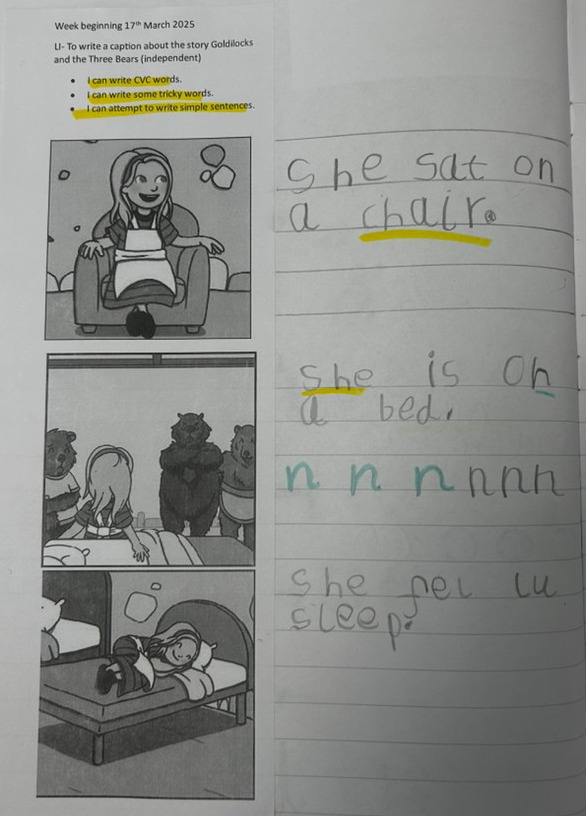 Week beginning 17th March 2025
LI- To write a caption about the story Goldilocks
and the Three Bears (independent)
• I can write CVC words.
• I can write some tricky words.
• I can attempt to write simple sentences.
She sat on
a chair.
She is on
a bed.
n n n n n n
She
sleep.